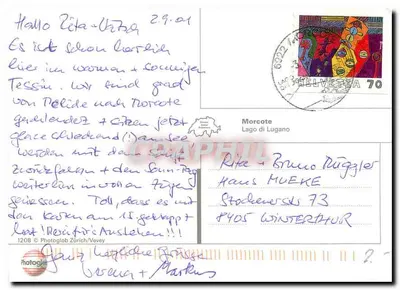 Hallo Rita +
29.01
Es ist schon herrlich
hier im warmen + sonnigen
Tessin. Wir sind grad
von Melide nach Morcote
+ sitzen jetzt
am See
werden mit dem
zurückfahren + den Sonntag
weiterhin in vollen Zügen
geniessen. Toll, dass es mit
den Karten am 15. geklappt
hat!
Ganz herzliche Grüsse
+ Markus
6922 MORCOTE
HELVETIA 70
Morcote
Lago di Lugano
Rita + Bruno Müggler
Hans MUEKE
73
8405 WINTERTHUR
1208 © Photoglob Zürich/Vevey
photoglob
2.-